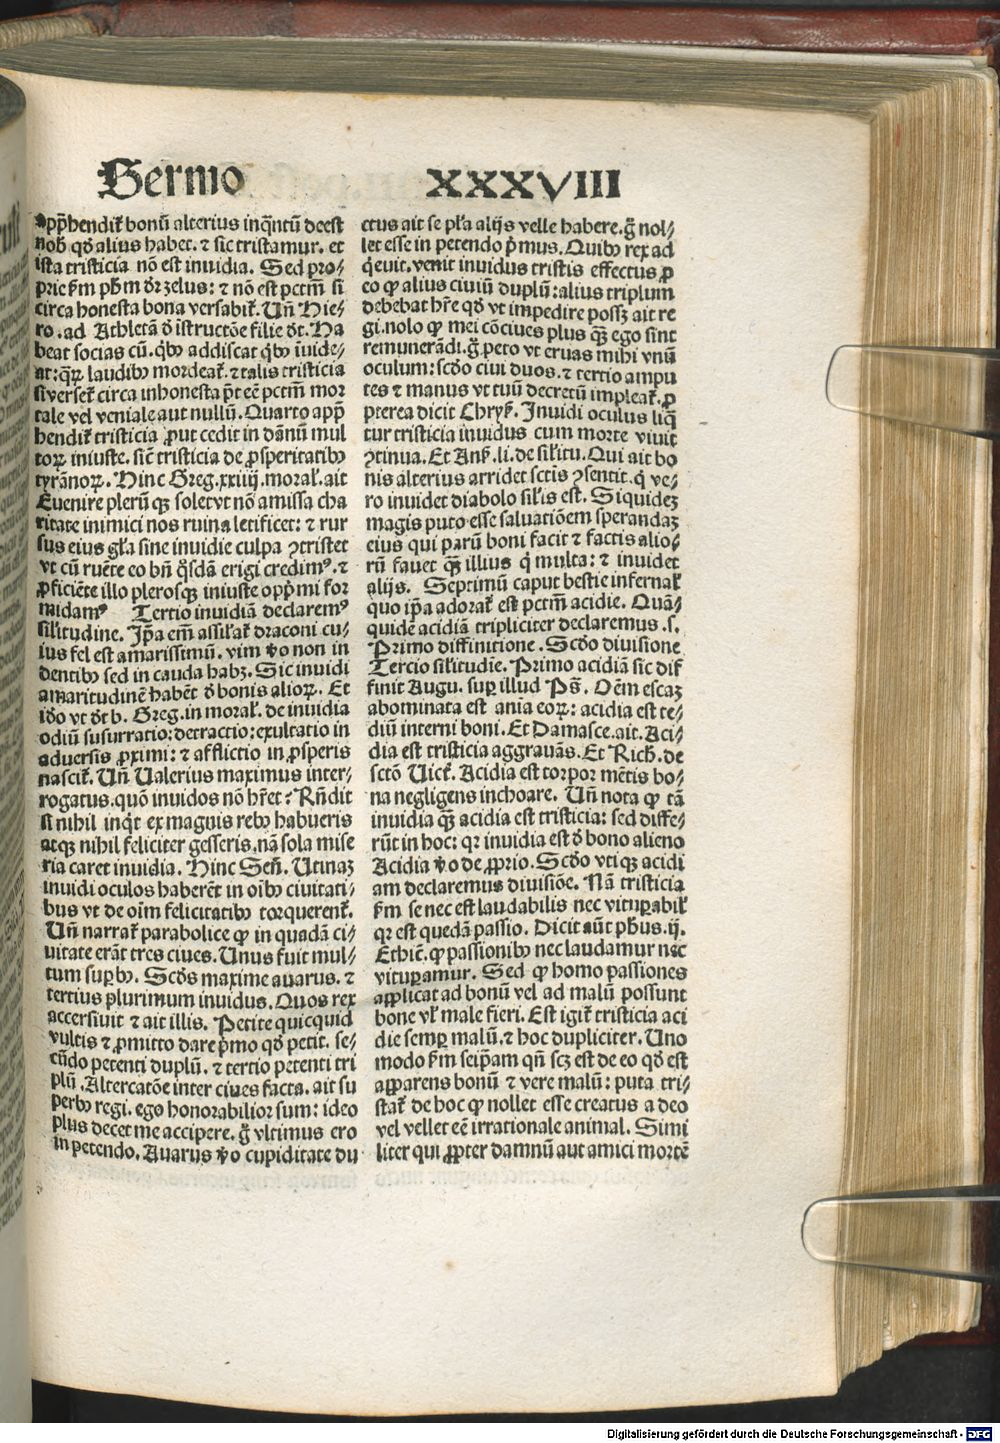 Sermo XXXVIII
app̄hendit᷑ bonū alterius inq̄ntū deest
nob̄ qd̓ alius habet. ⁊ sic tristamur. et
ista tristicia nō est inuidia. Sed pro⸗
prie ẜm ph̄m dr̄ zelus: ⁊ nō est pctm̄ si
circa honesta bona versabit᷑. Un̄ Hie⸗
ro. ad Athletā d̓ īstructōe filie d̓t. Ha
beat socias cū. qͥbꝰ addiscat qͥbꝰ īuide⸗
at: qͣꝝ laudibꝰ mordeat᷑. ⁊ talis tristicia
si verset᷑ circa inhonesta pt̄ eē pctm̄ mor
tale vel veniale aut nullū. Quarto app̄
hendit᷑ tristicia ꝓut cedit in dānū mul
toꝝ iniuste. sic̄ tristicia de ꝓsperitatibꝰ
tyrānoꝝ. Hinc Greg. xxiiij. moral᷑. ait
Euenire plerū qꝫ solet vt nō amissa cha
ritate inimici nos ruina letificet: ⁊ rur
sus eius gl̄a sine inuidie culpa ꝯtristet
vt cū ruēte eo bn̄ qͦsdā erigi credimꝰ. ⁊
ꝓficiēte illo plerosqꝫ iniuste opp̄mi for
midamꝰ Tertio inuidiā declaremꝰ
sil̓itudine. Ip̄a em̄ assil̓at᷑ draconi cu⸗
ius fel est amarissimū. vim v̓o non in
dentibꝰ sed in cauda habꝫ. Sic inuidi
amaritudinē habēt d̓ bonis alioꝝ. Et
id̓o vt d̓t b. Greg. in moral᷑. de inuidia
odiū susurratio: detractio: exultatio in
aduersis ꝓximi: ⁊ afflictio in ꝓsperis
nascit᷑. Un̄ Ualerius maximus inter⸗
rogatus. quō inuidos nō hr̄et? Rn̄dit
si nihil inqͥt ex magnis rebꝰ habueris
atqꝫ nihil feliciter gesseris. nā sola mise
ria caret inuidia. Hinc Sen̄. Utinaꝫ
inuidi oculos haberēt in oībꝰ ciuitati⸗
bus vt de oīm felicitatibꝰ torquerent᷑.
Un̄ narrat᷑ parabolice ꝙ in quadā ci⸗
uitate erāt tres ciues. Unus fuit mul⸗
tum suꝑbꝰ. Scd̓s maxime auarus. ⁊
tertius plurimum inuidus. Quos rex
accersiuit ⁊ ait illis. Petite quicquid
vultis ⁊ ꝓmitto dare pͥmo qd̓ petit. se⸗
cūdo petenti duplū. ⁊ tertio petenti tri
plū. Altercatōe inter ciues facta. ait su
perbꝰ regi. ego honorabilior sum: ideo
plus decet me accipere. g̊ vltimus ero
in petendo. Auarus v̓o cupiditate du
ctus ait se pl̓a alijs velle habere. g̊ nol⸗
let esse in petendo pͥmus. Quibꝰ rex ad
qͥeuit. venit inuidus tristis effectus ꝓ
eo ꝙ alius ciuiū duplū: alius triplum
debebat hr̄e qd̓ vt impedire possꝫ ait re
gi. nolo ꝙ mei cōciues plus qͣꝫ ego sint
remunerādi. g̊ peto vt eruas mihi vnū
oculum: scd̓o ciui duos. ⁊ tertio ampu
tes ⁊ manus vt tuū decretū impleat᷑. ꝓ
pterea dicit Chrys̓. Inuidi oculus liqͥ
tur tristicia inuidus cum morte viuit
ꝯtinua. Et Ans̓. li. de sil̓itu. Qui ait bo
nis alterius arridet sctīs ꝯsentit. qͥ ve⸗
ro inuidet diabolo sil̓is est. Siquideꝫ
magis puto esse saluatiōem sperandaꝫ
eius qui parū boni facit ⁊ factis alio⸗
rū fauet qͣꝫ illius qͥ multa: ⁊ inuidet
alijs. Septimū caput bestie infernal᷑
quo ip̄a adorat᷑ est pctm̄ acidie. Quā⸗
quidē acidiā tripliciter declaremus .s.
Primo diffinitione. Scd̓o diuisione
Tercio sil̓itudīe. Primo acidiā sic dif
finit Augu. suꝑ illud Ps̄. Oēm escaꝫ
abominata est aīa eoꝝ: acidia est te⸗
diū interni boni. Et Damasce. ait. Aci⸗
dia est tristicia aggrauās. Et Rich. de
sctō Uict᷑. Acidia est torpor mētis bo⸗
na negligens inchoare. Un̄ nota ꝙ tā
inuidia qͣꝫ acidia est tristicia: sed diffe⸗
rūt in hoc: qꝛ inuidia est d̓ bono alieno
Acidia v̓o de ꝓprio. Scd̓o vtiqꝫ acidi
am declaremus diuisiōe. Nā tristicia
ẜm se nec est laudabilis nec vituꝑabil᷑
qꝛ est quedā passio. Dicit aūt ph̄us. ij.
Ethic̄. ꝙ passionibꝰ nec laudamur nec
vituꝑamur. Sed ꝙ homo passiones
applicat ad bonū vel ad malū possunt
bone vl̓ male fieri. Est igit᷑ tristicia aci
die semꝑ malū. ⁊ hoc dupliciter. Uno
modo ẜm seip̄am qn̄ scꝫ est de eo qd̓ est
apparens bonū ⁊ vere malū: puta tri⸗
stat᷑ de hoc ꝙ nollet esse creatus a deo
vel vellet eē irrationale animal. Simi
liter qui ꝓpter damnū aut amici mortē
Digitalisierung gefördert durch die Deutsche Forschungsgemeinschaft - DFG